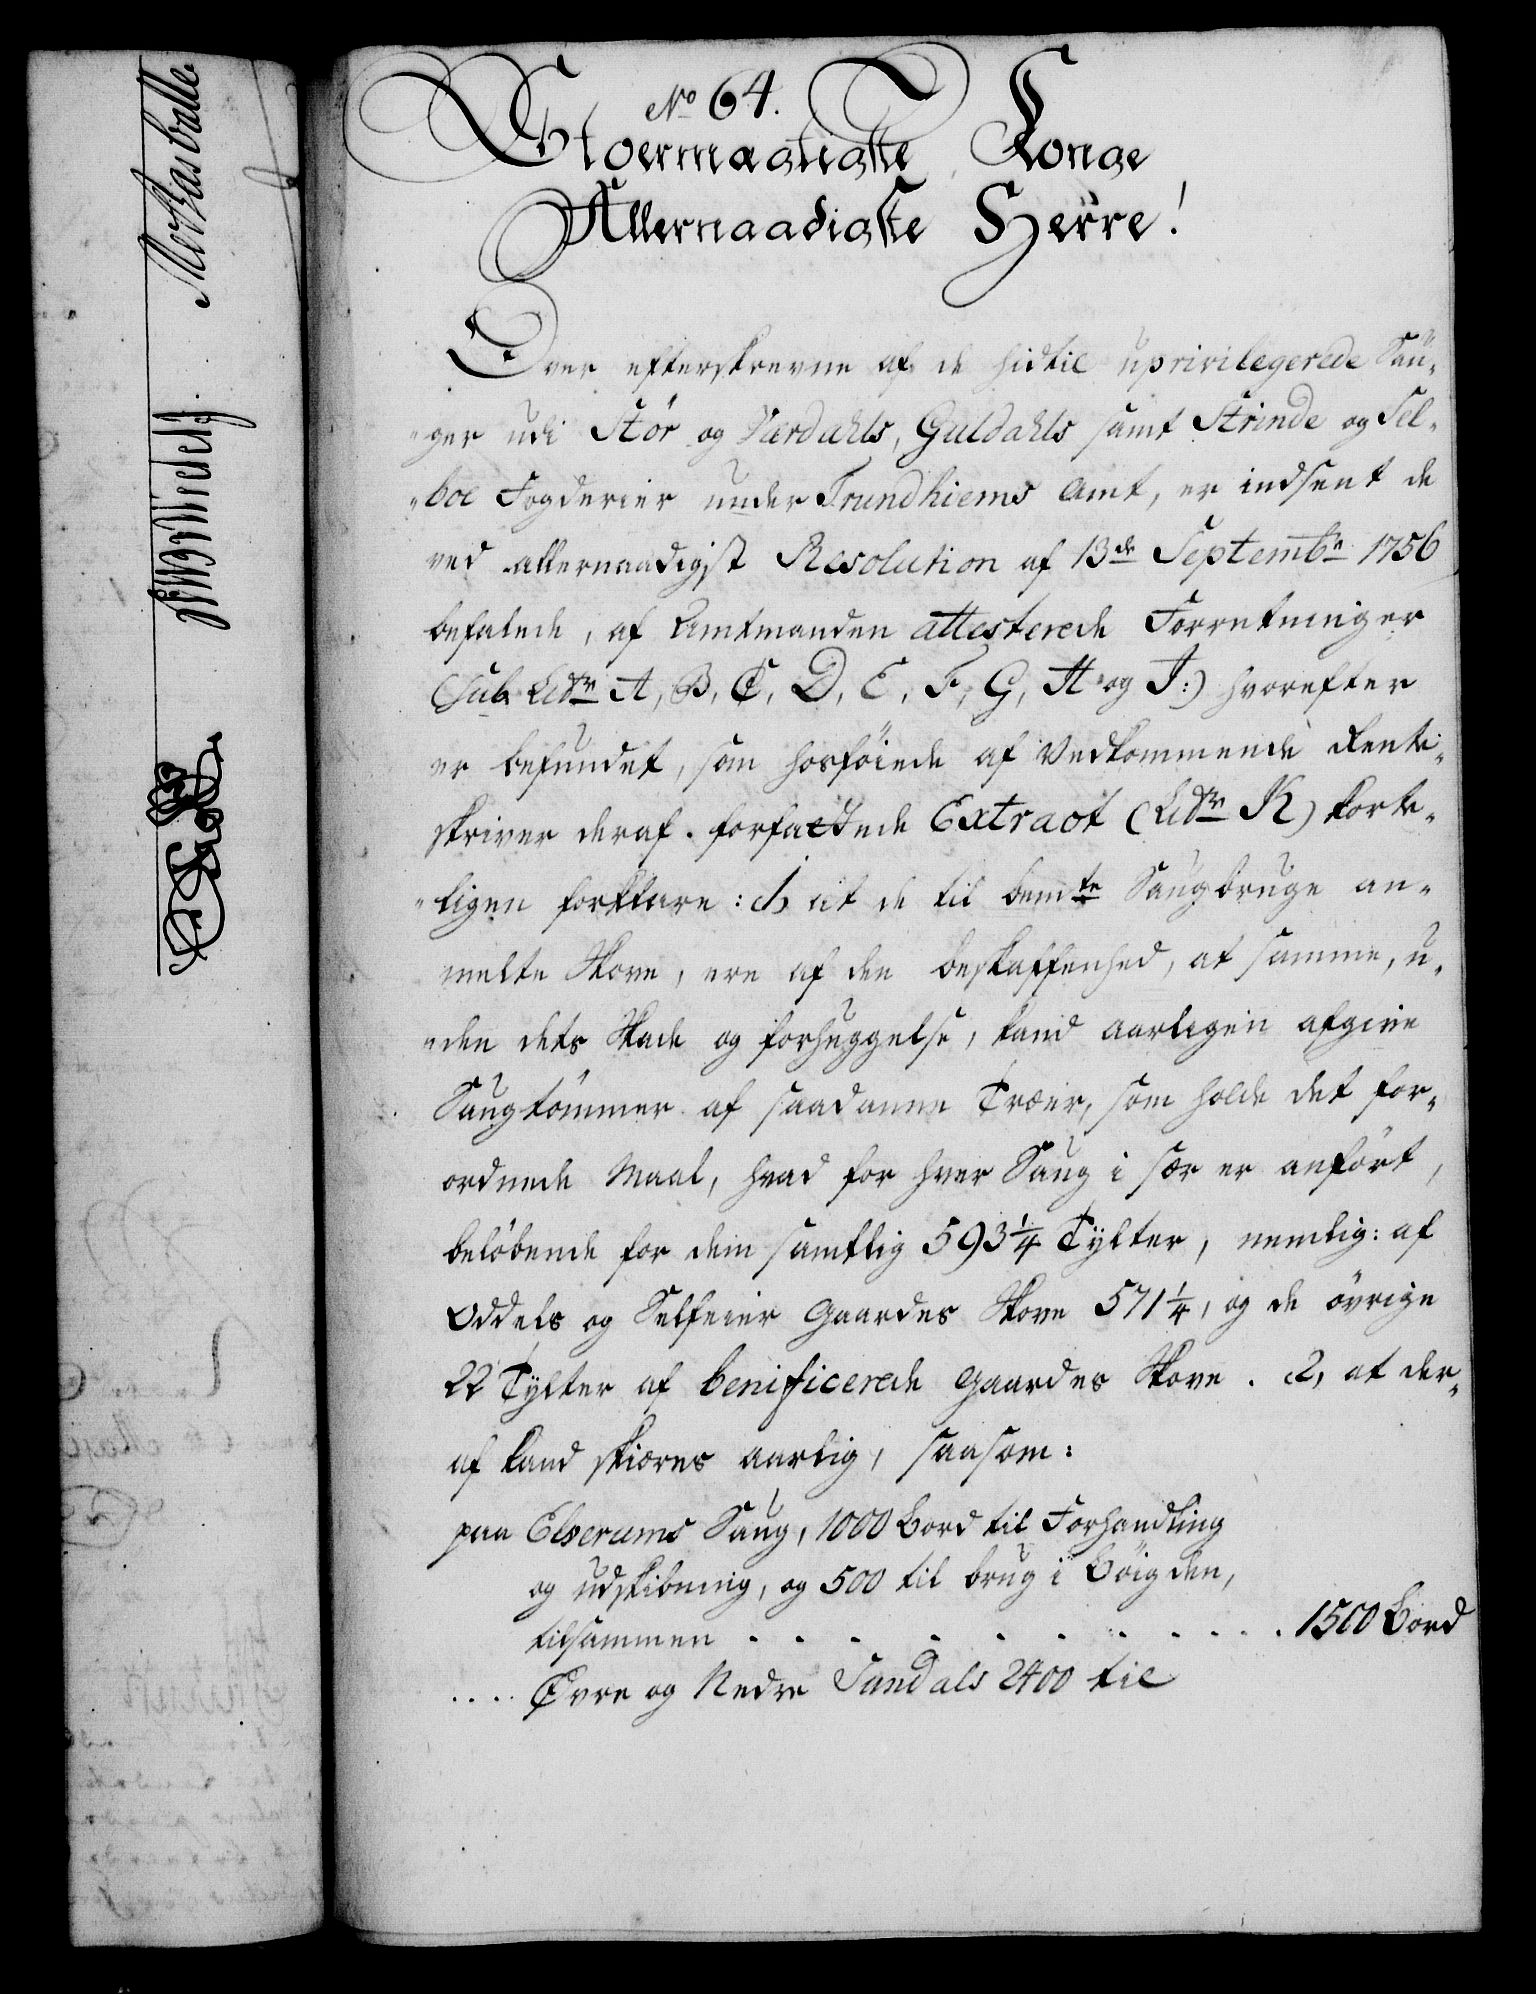 No 64.
Stoermægtigste Konge
Allernaadigste Herre!
Over efterskrevne af de hidtil uprivilegerede Sau„
„ger udi Stör og Værdahls, Guldahls samt Strinde og Sel„
„boe Fogderier under Trundhiems Amt, er indsent de
ved allernaadigst Resolution af 13de Septembr 1756
befalede, af Amtmanden attesterede Forretninger
(sub Littr A, B, C, D, E, F, G, H og I:) hvorefter
er befundet, som hosföiede af Vedkommende Rente„
skriver deraf forfattede Extract (Littr K) korte„
„ligen forklare: 1, at de til bemte Saugbruge an„
melte Skove, ere af den beskaffenhed, at samme, u„
„den dets Skade og forhuggelse, kand aarligen afgive
Saugtömmer af saadanne Træer, som holde det for„
ordnede Maal, hvad for hver Saug i sær er anfört,
belöbende for dem samtlig 593 1/4 Tylter, nemlig: af
Oddels og Selfeier Gaardes Skove 571 1/4, og de övrige
22 Tylter af benificerede Gaardes Skove. 2, at der„
af kand skiæres aarlig, saasom:
paa Elverums Saug, 1000 Bord til Forhandling
og udskibning, og 500 til brug i Böigden,
tilsammen . . . . . . . . . . . . 1500 Bord
.... Övre og Nedre Sandals 2400 til